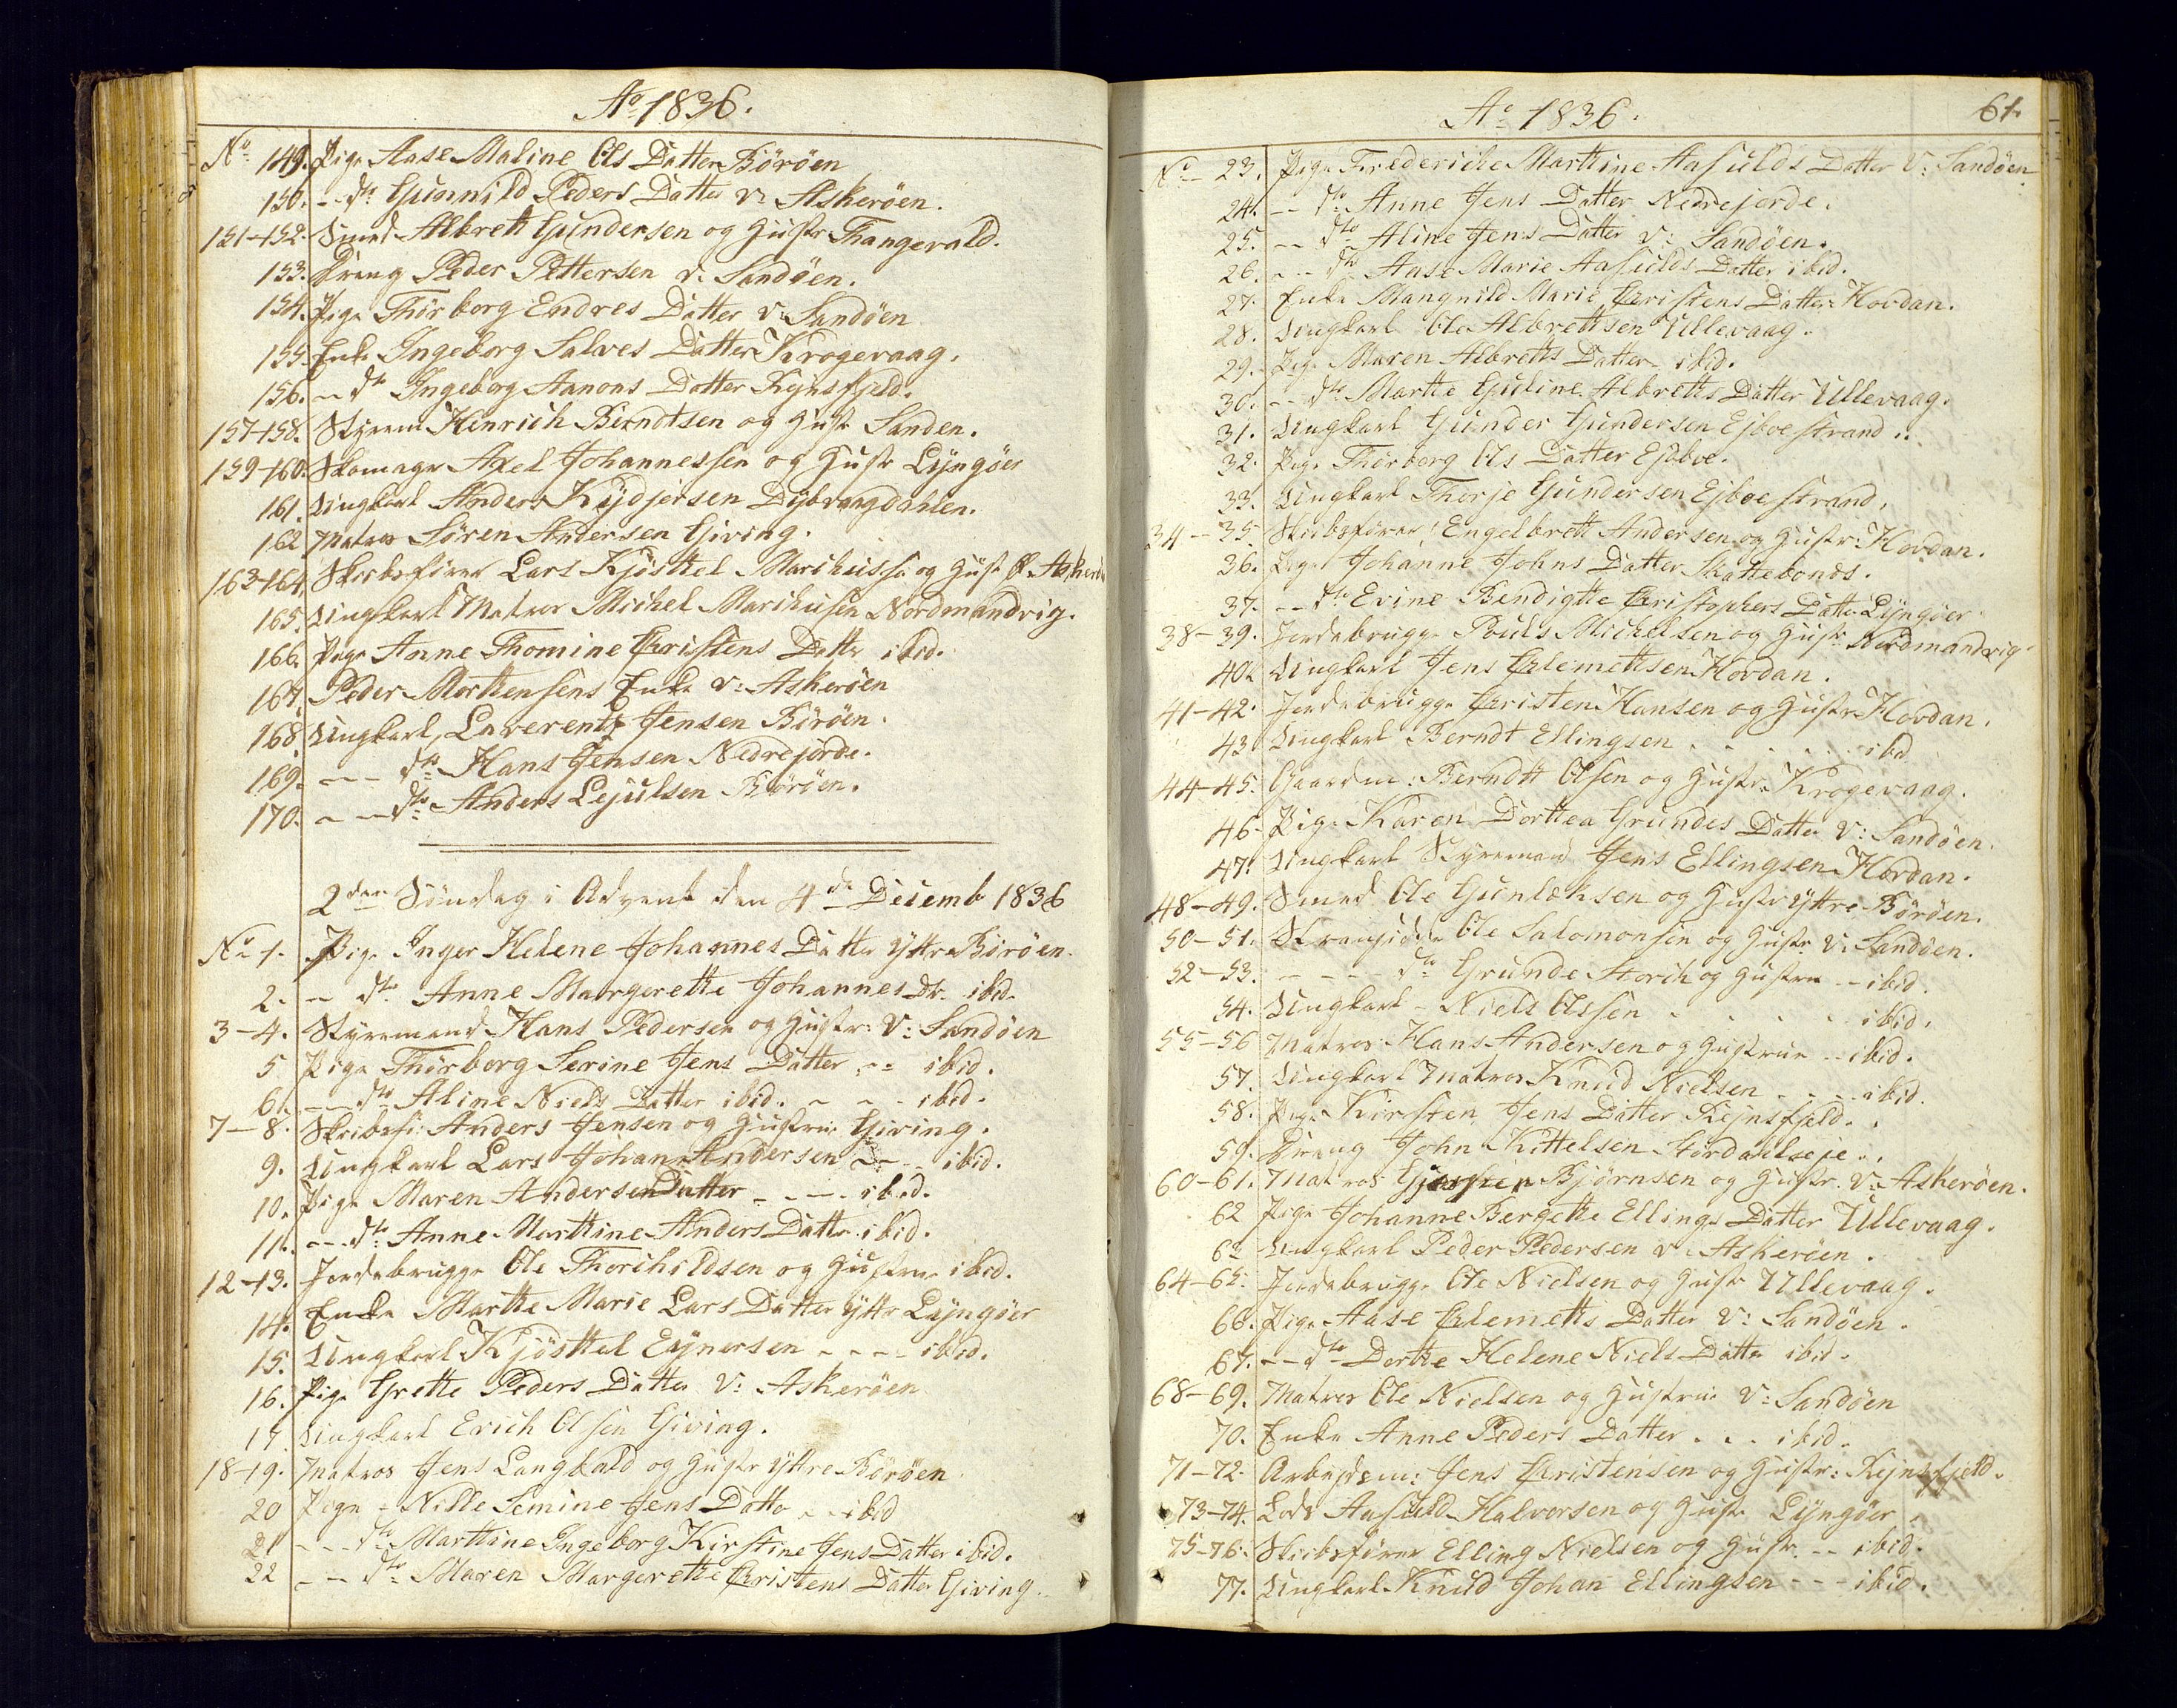 Ao 1836.
No 149. Pige Aase Maline Ols Datter Böröen
150. -- dto Gunnild Peders Datter V: Askeröen.
151-152. Smed Albrett Gundersen og Hustr Thangevald.
153. Dreng Peder Pettersen V: Sandöen.
154. Pige Thörborg Endres Datter V: Sandöen
155. Enke Ingeborg Salves Datter Krogevaag.
156. -- dto Ingeborg Aanons Datter Kejnsfjeld.
157-158. Styrem Henrich Berndtsen og Hustr Sanden.
159-160. Skomager Axel Johannessen og Hustr Lyngöer
161. Ungkarl Anders Kydjersen Dybvaagdahlen.
162 Matros Sören Andersen Giving.
163-164. Skibsförer Lars Kjösttel Markussen og Hust
165. Ungkarl Matros Michel Markusen Nordmandvig.
166. Pige Anne Thomine Christens Dattr ibid.
167. Peder Morttensens Enke V: Askeröen
168. Ungkarl, Laverentz Jensen Böröen.
169. --- dto Hans Jensen Nedrejorde.
170. --- dto Anders Lejulsen Böröen.
2den Söndag i Advent den 4de Decemb 1836
No 1. Pige Inger Helene Johannes Datter Yttre Böröen.
2. -- dto Anne Margerethe Johannes Dr. ibid.
3-4. Styremand Hans Pedersen og Hustr: V: Sandöen
5 Pige Thörborg Serine Jens Datter -- ibid.
6. --- dto Aline Niels Datter ibid. - - - ibid.
7-8. Skibsfö: Anders Jensen og Hustrue Giving.
9. Ungkarl Lars Johan Andersen --- ibid.
10. Pige Maren Andersen Datter - - - ibid.
11. --- dto Anne Marttine Anders Datter ibid.
12-13. Jordebrugger Ole Thorchildsen og Hustrue ibid.
14. Enke Marthe Marie Lars Datter Yttr Lyngöer
15. Ungkarl Kjösttel Eynersen - - - - ibid.
16. Pige Grette Peders Datter V: Askeröen
17 Ungkarl Erich Olsen Giving.
18-19. Matros Jens Langkald og Hustr Yttre Böröen
20 Pige - Nille Semine Jens Dattr - - ibid
21 --- dto Marttine Ingeborg Kirstine Jens Datter ibid.
22 --- dto Maren Margerethe Christens Datter Giving.
Ao 1836.
61.
No 23. Pige Frederiche Marttine Aasulds Datter V: Sandöen
24. -- dto Anne Jens Datter Nedrejorde.
25. -- dto Aline Jens Datter V: Sandöen.
26. --- dto Aase Marie Aasulds Datter ibid.
27. Enke Mangnild Marie Christens Datter Hovdan.
28. Ungkarl Ole Albrettsen Ullevaag.
29. Pige Maren Albretts Datter ibid.
30. -- dto Marthe Guline Albretts Datter Ullevaag.
31. Ungkarl Gunder Gundersen Ejboestrand.
32. Pige Thörborg Ols Datter Ejdboe.
33. Ungkarl Thorje Gundersen Ejboestrand.
34-35. Skibsförer Engelbrett Andersen og Hustr: Hovdan.
36. Pige Johanne Johns Datter Skattebonds.
37. -- dto Evine Bendigtte Christophers Datter Lyngöer
38-39. Jordebrugge Pouls Michelsen og Hustr Nordmandvig.
40. Ungkarl Jens Clemettsen Hovdan.
41-42. Jordebrugge Christen Hansen og Hustr Hovdan.
43. Ungkarl Berndt Ellingsen . . . . . ibid
44-45. Gaardm: Berndtt Olsen og Hustr: Krogevaag.
46. Pige Karen Dorttea Grundes Datter V: Sandöen.
47. Ungkarl Styrmand Jens Ellingsen Hovdan.
48-49. Smed Ole Gunleksen og Hustr Yttre Böröen.
50-51. Ole Salomonsen og Hustr. V: Sandöen.
52-53. - - - - dto Grunde Storch og Hustrue -- ibid.
54. Ungkarl - Niels Olssen - - - - ibid.
55-56 Matros Hans Andersen og Hustrue -- ibid.
57. Ungkarl Matros Knud Nielsen - - - ibid.
58. Pige Kirsten Jens Datter Kejnsfjeld.
59. Dreng John Kittelsen
60-61. Matros Björnsen og Hustr. V: Askeröen.
62 Pige Johanne Bergette Ellings Datter Ullevaag.
63 Ungkarl Peder Pedersen V: Askeröen.
64-65. Jordebrugge Ole Nielsen og Hustr Ullevaag.
66. Pige Aase Clemetts Datter V: Sandöen.
67. -- dto Dorthe Helene Niels Datter ibid.
68-69. Matros Ole Nielsen og Hustrue V: Sandöen
70. Enke Anne Peders Datter . . . ibid.
71-72. Arbejdsm: Jens Christensen og Hustr: Kejnsfjeld.
73-74. Lods Aasuld Halvorsen og Hustr Lyngöer
75-76. Skibsförer Elling Nielsen og Hustr. -- ibid.
77. Ungkarl Knud Johan Ellingsen --- ibid.